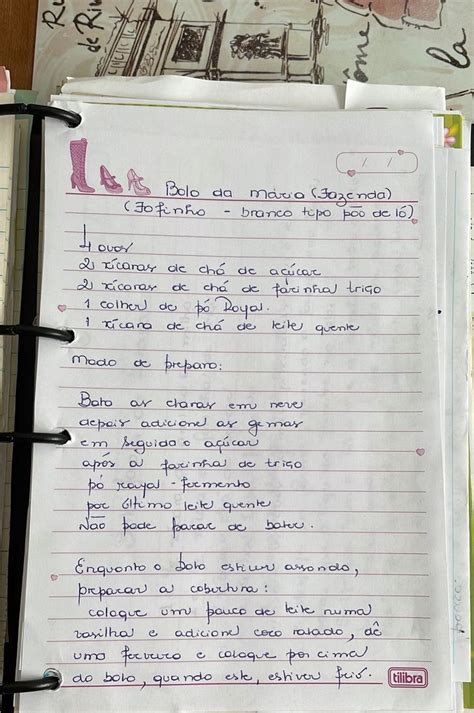 Ru
de Riv
la
Bolo da mário (Fazenda)
(Fofinho - branco tipo pão de ló)
4 ovos
2 xícaras de chá de açúcar
2 xícaras de chá de farinha trigo
1 colher de pó Royal.
1 xícara de chá de leite quente
Modo de preparo:
Bata as claras em neve
depois adicione as gemas
em seguida o açúcar
após a farinha de trigo
pó royal - fermento
por último leite quente
Não pode parar de bater.
Enquanto o bolo estiver assando,
preparar a cobertura:
coloque um pouco de leite numa
vasilha e adicione coco ralado, dê
uma fervura e coloque por cima
do bolo, quando este, estiver frio.
tilibra